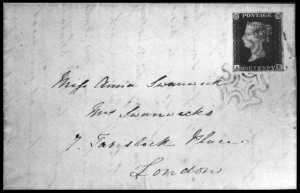 POSTAGE
ONE PENNY
Miss Anna Swanwick
Mrs Swanwicks
7. Tavistock Place
London